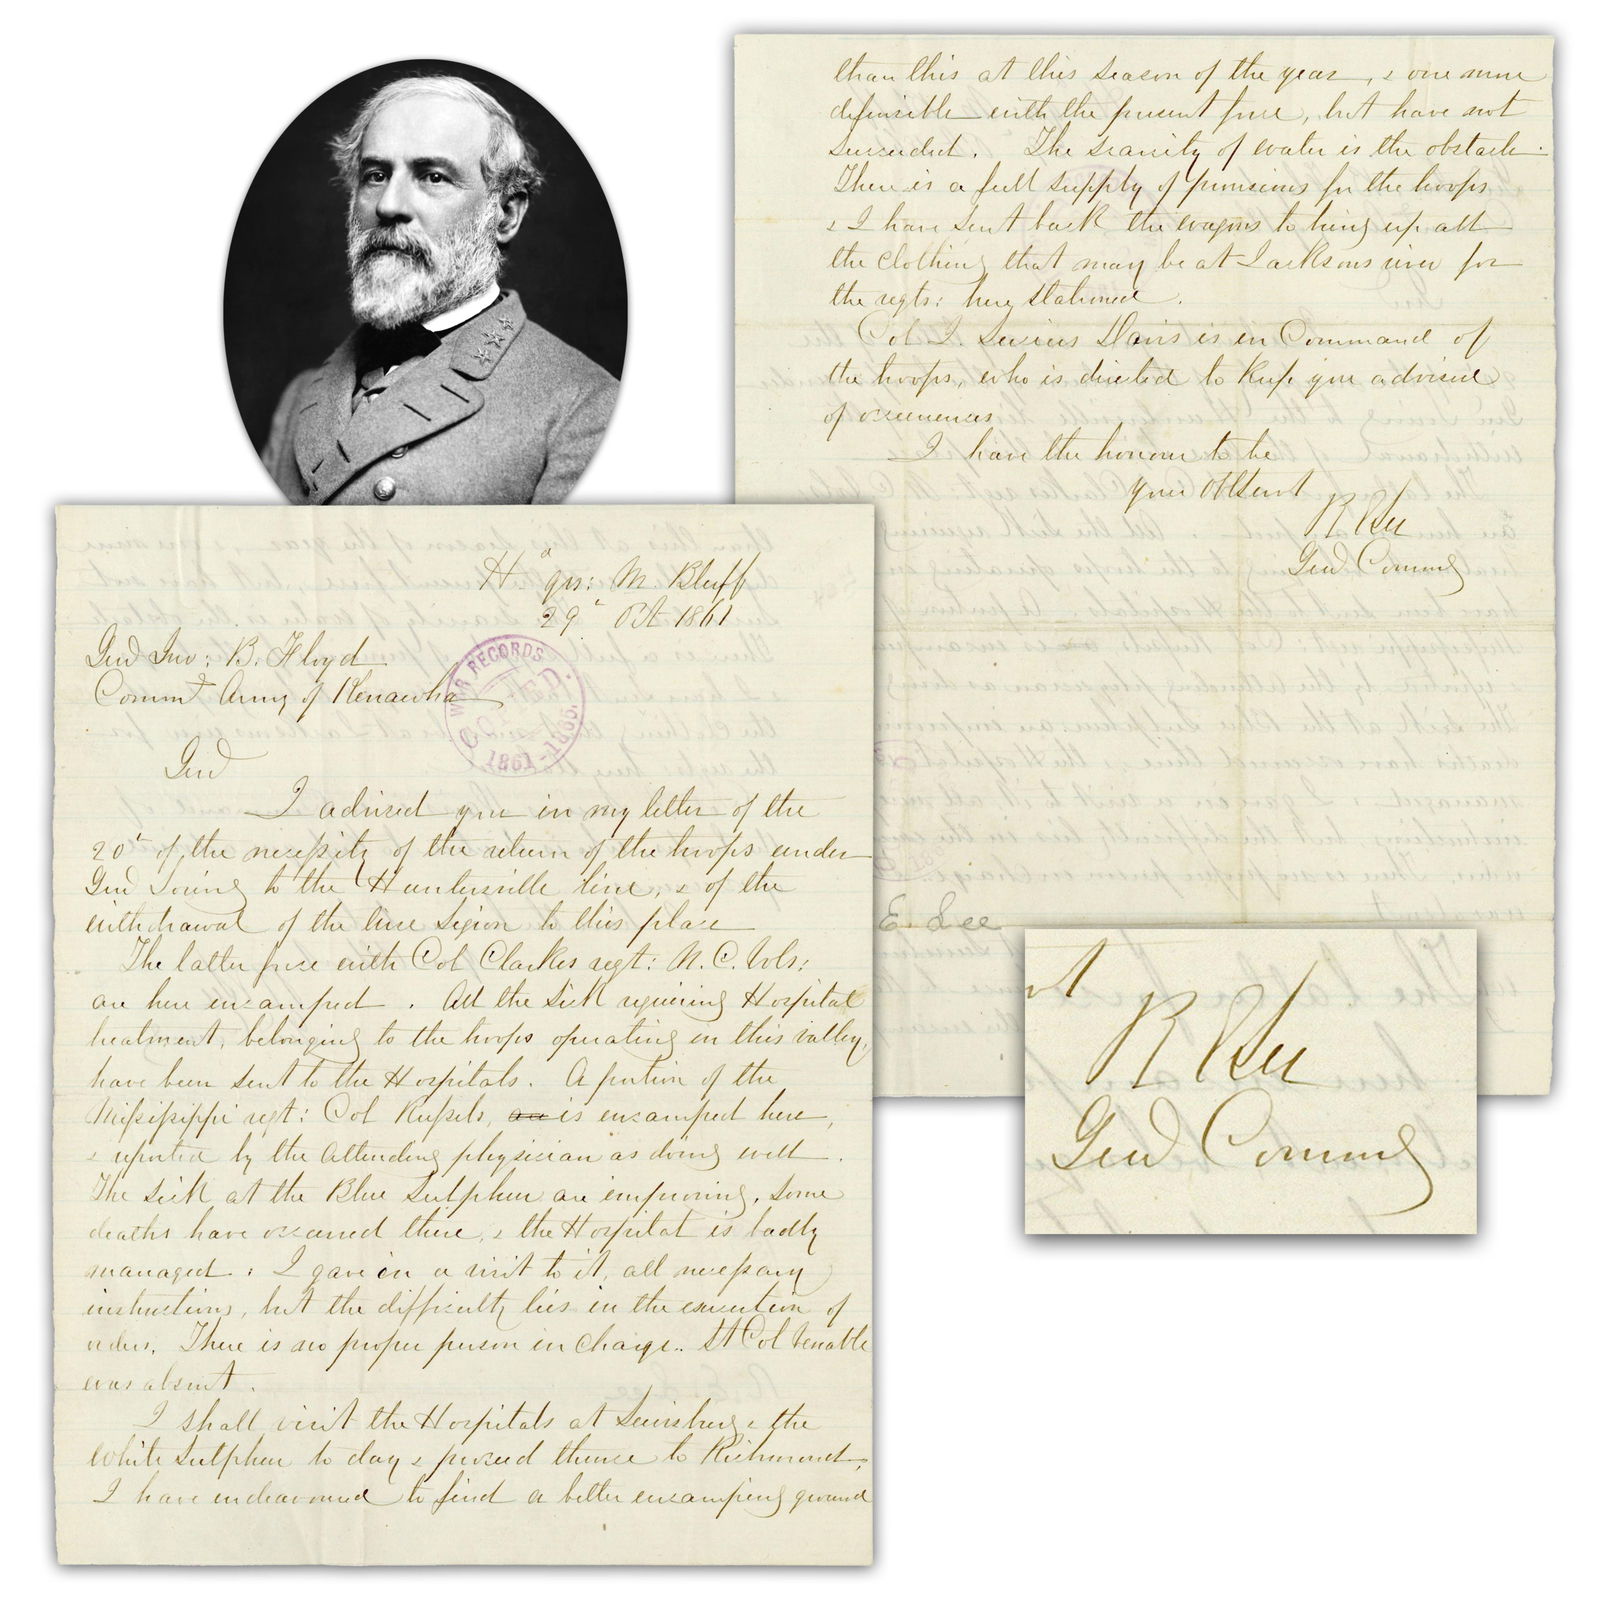 Hd qrs: M. Bluff
29t Oct 1861
Genl Jno: B. Floyd
Commg Army of Kenawha
WAR RECORDS
COPIED.
1861-1865.
Genl
I advised you in my letter of the
20t of the necessity of the return of the troops under
Genl Loring to the Huntersville line, & of the
withdrawal of the Wise Legion to this place
The latter force with Col Clarkes regt: N.C. Vols:
are here encamped. All the sick requiring Hospital
treatment, belonging to the troops operating in this valley,
have been sent to the Hospitals. A portion of the
Mississippi regt: Col Russels, is encamped here,
& reported by the attending physician as doing well.
The sick at the Blue Sulphur are improving. Some
deaths have occured there, & the Hospital is badly
managed: I gave in a visit to it, all necessary
instructions, but the difficulty lies in the execution of
orders. There is no proper person in charge. Lt Col Venable
was absent.
I shall visit the Hospitals at Lewisburg & the
White Sulphur to day & proceed thence to Richmond.
I have endeavoured to find a better encamping ground
than this at this season of the year, & one more
defensible with the present force, but have not
succeeded. The scarcity of water is the obstacle.
There is a full supply of provisions for the troops
& I have sent back the wagons to bring up all
the clothing that may be at Jacksons river for
the regts: here stationed.
Col J. Lucius Davis is in Command of
the troops, who is directed to keep you advised
of occurrences
I have the honour to be
your obt servt
R E Lee
Genl Commg
E. Lee
R E Lee
Genl Commg